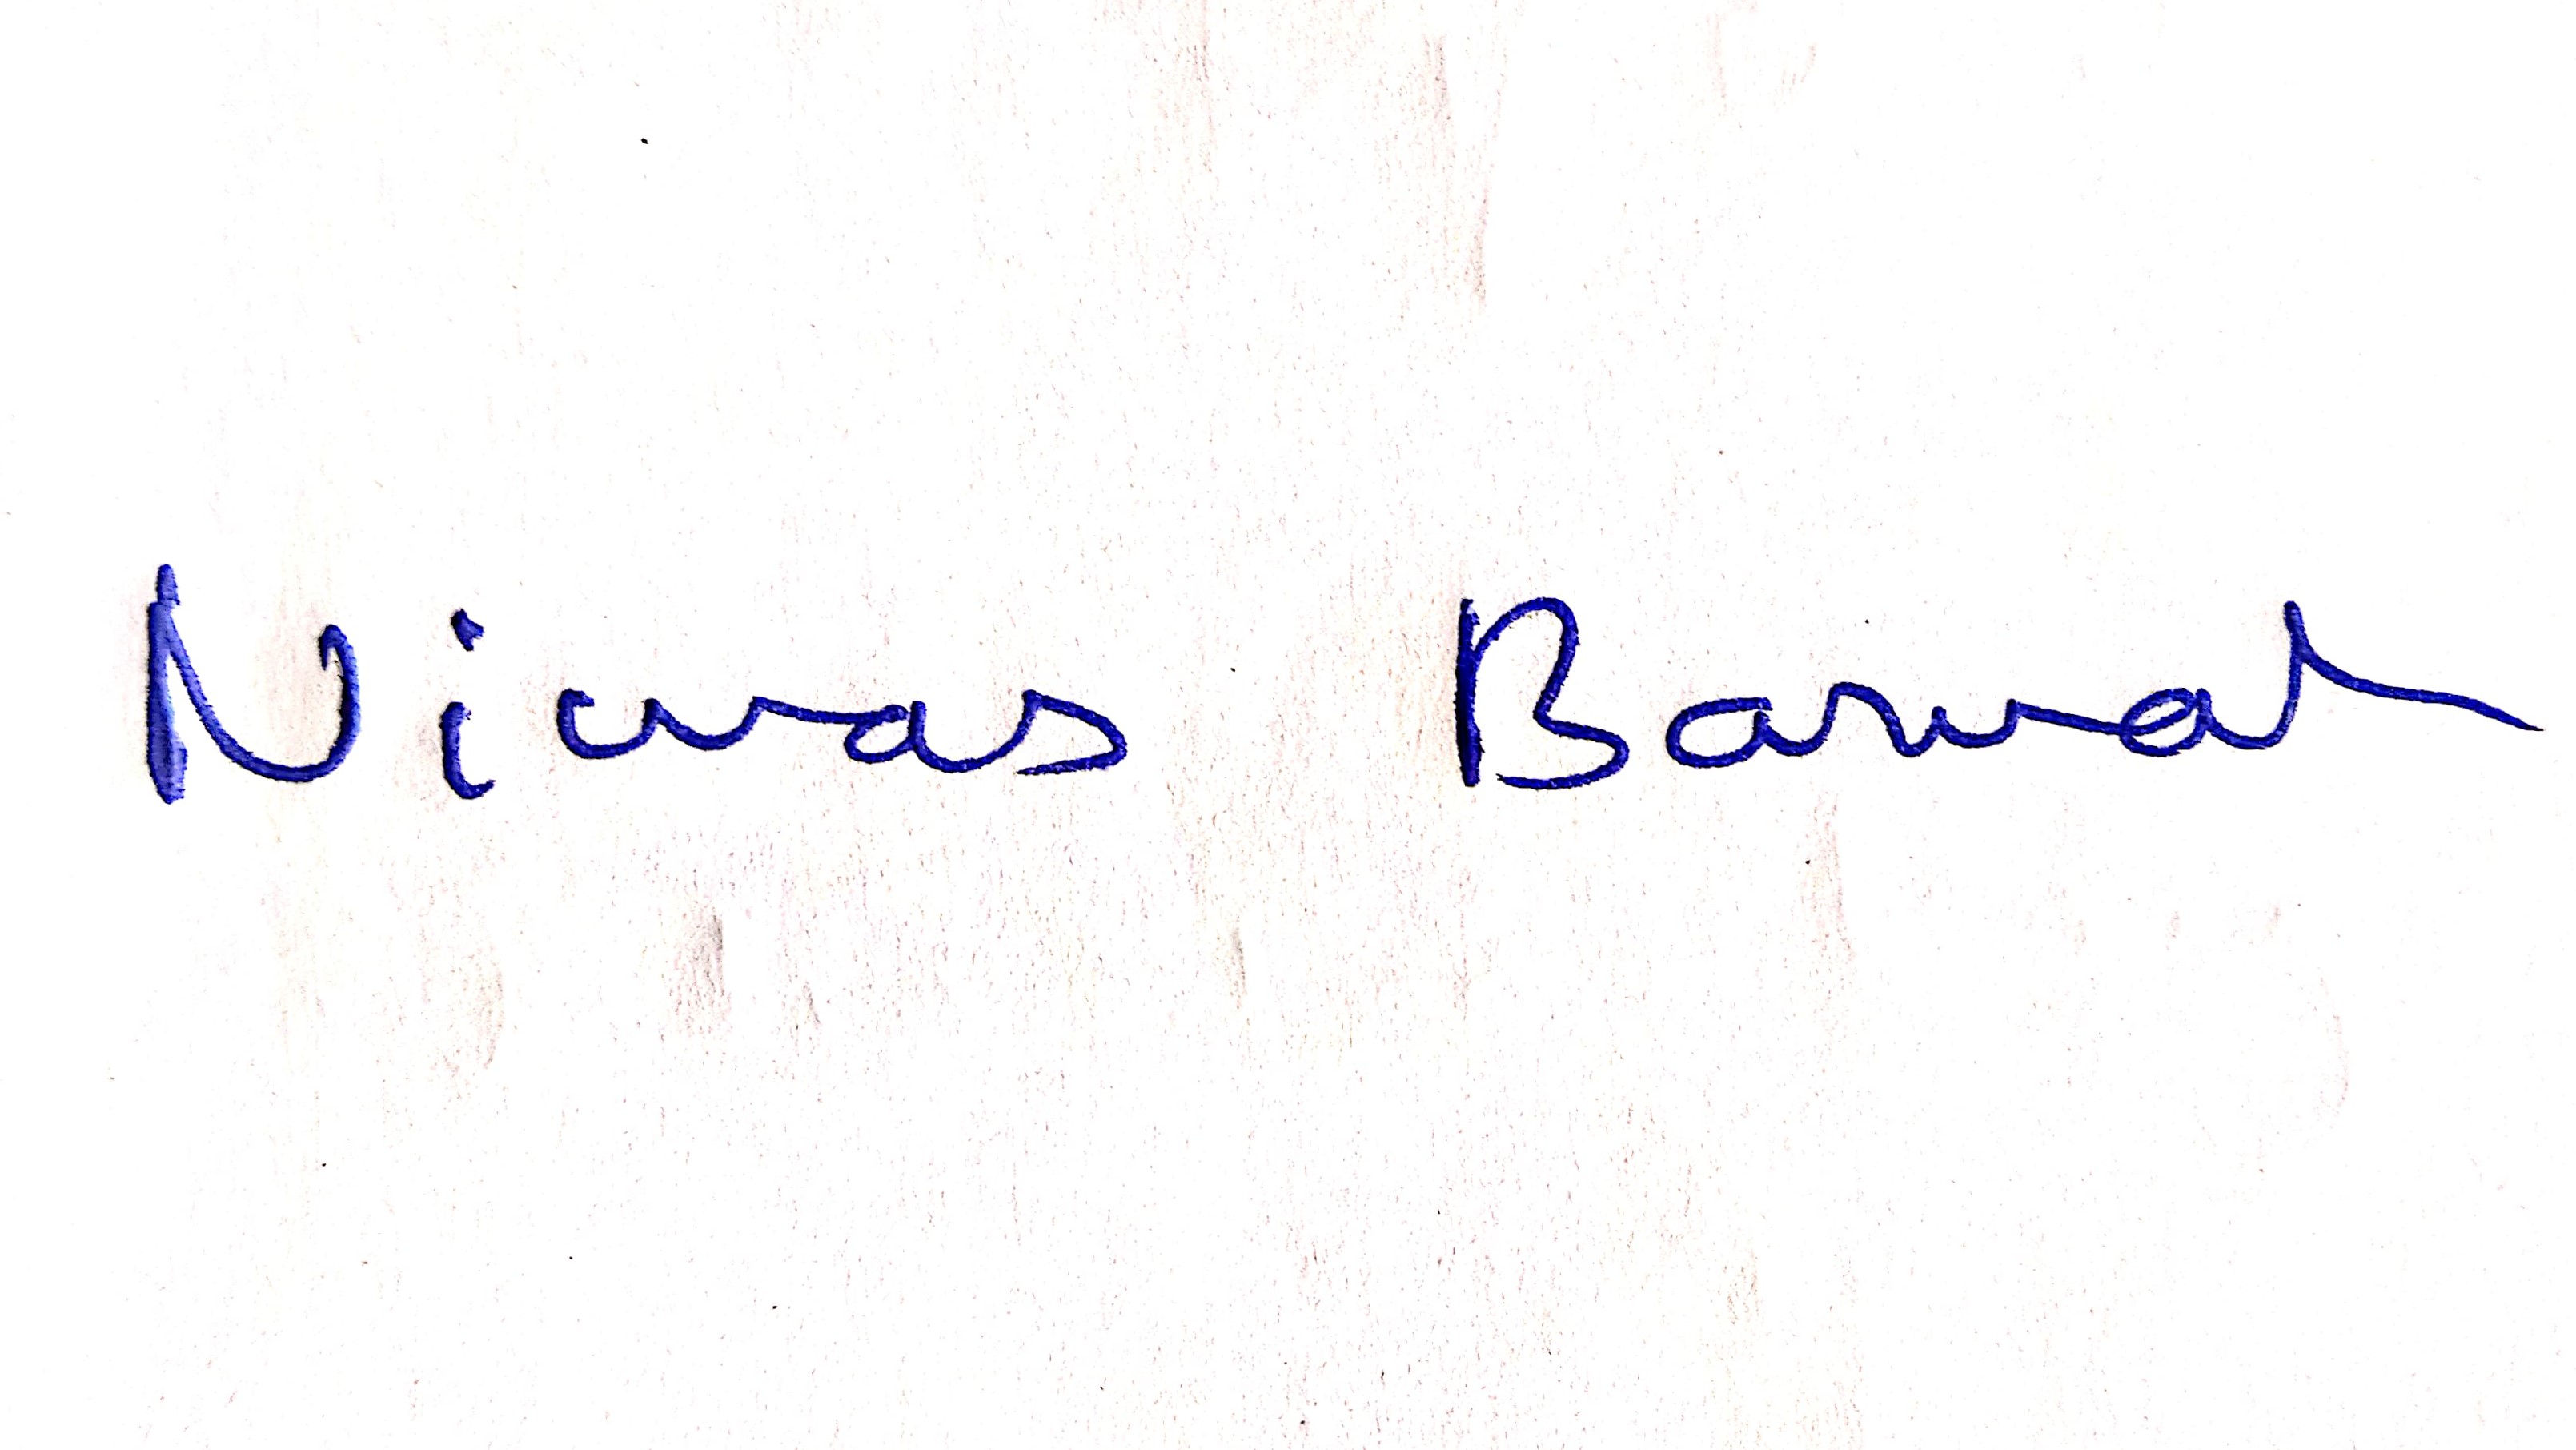 Niwas Barwal